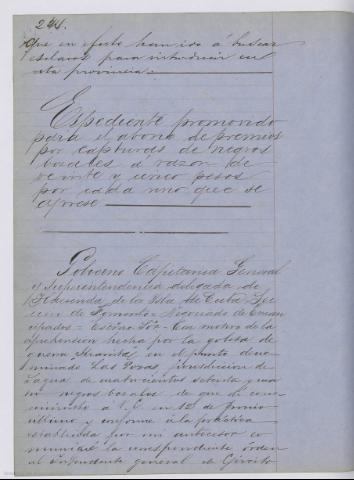 244.
que en efecto han ido á buscar
esclavos para introducir en
esta provincia.
Expediente promovido
para el abono de premios
por capturas de negros
bozales á razon de
veinte y cinco pesos
por cada uno que se
aprese
Gobierno Capitania General
y Superintendencia delegada de
Hacienda de la Isla de Cuba Sec
cion de Fomento Negociado de Eman
cipados = Escmo Sór = Con motivo de la
aprehension hecha por la goleta de
guerra "Huanita" en el punto deno
minado Las Pozas, jurisdiccion de
Sagua de cuatrocientos setenta y un
negros bozales de que di cono
cimiento á V. E. en 12 de Junio
último y conforme á la práctica
establecida por mi antecesor co
muniqué la correspondiente orden
al Intendente general de Ejército